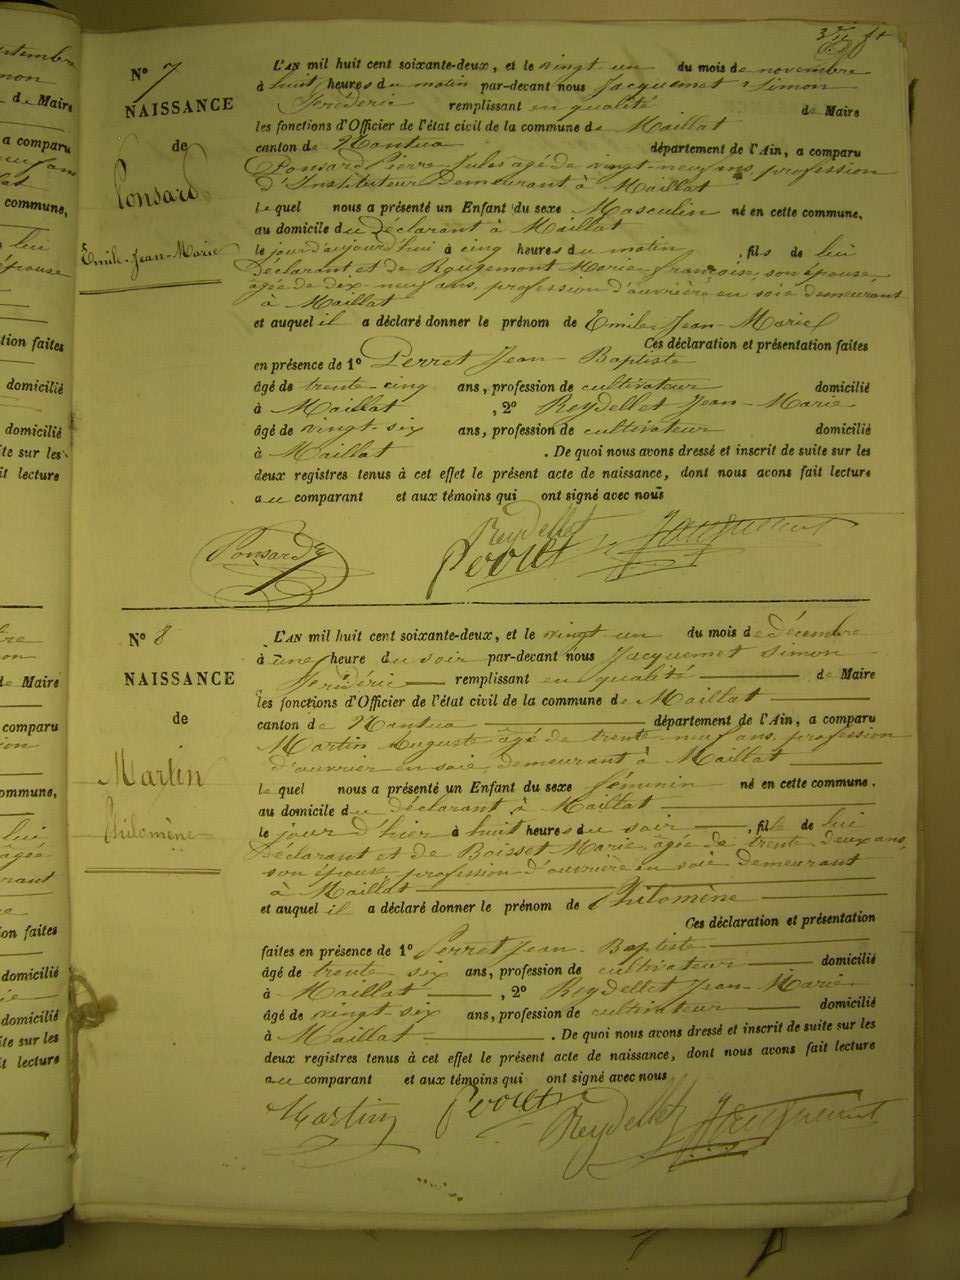 N° 7
NAISSANCE
de
Ponsard
Emile-Jean-Marie
L'AN mil huit cent soixante-deux, et le vingt un du mois de novembre
à huit heures du matin par-devant nous Jacquemet Simon
Frédéric remplissant en qualité de Maire
les fonctions d'Officier de l'état civil de la commune de Maillat
canton de Nantua département de l'Ain, a comparu
Ponsard Pierre Jules âgé de vingt-neuf ans, profession
d'Instituteur Demeurant à Maillat
Le quel nous a présenté un Enfant du sexe Masculin né en cette commune,
au domicile du Déclarant à Maillat
le jour d'aujourd'hui à cinq heures du matin, fils de lui
Déclarant et de Rougemont Marie-françoise, son épouse
âgée de dix-neuf ans, profession d'ouvrière en soie demeurant
à Maillat
et auquel il a déclaré donner le prénom de Emile Jean-Marie
Ces déclaration et présentation faites
en présence de 1° Perret Jean-Baptiste
âgé de trente-cinq ans, profession de cultivateur domicilié
à Maillat, 2° Reydellet Jean-Marie
âgé de vingt-six ans, profession de cultivateur domicilié
à Maillat. De quoi nous avons dressé et inscrit de suite sur les
deux registres tenus à cet effet le présent acte de naissance, dont nous avons fait lecture
au comparant et aux témoins qui ont signé avec nous
Ponsard Reydellet Perret Jacquemet
N° 8
NAISSANCE
de
Martin
Philomène
L'AN mil huit cent soixante-deux, et le vingt un du mois de décembre
à une heure du soir par-devant nous Jacquemet Simon
Frédéric remplissant en qualité de Maire
les fonctions d'Officier de l'état civil de la commune de Maillat
canton de Nantua département de l'Ain, a comparu
Martin Auguste âgé de trente-neuf ans, profession
d'ouvrier en soie, demeurant à Maillat
Le quel nous a présenté un Enfant du sexe féminin né en cette commune,
au domicile du Déclarant à Maillat
le jour d'hier à huit heures du soir, fille de lui
Déclarant et de Boisset Marie, agée de trente deux ans,
son épouse, profession d'ouvrière en soie demeurant
à Maillat
et auquel il a déclaré donner le prénom de Philomène
Ces déclaration et présentation
faites en présence de 1° Perret Jean-Baptiste
âgé de trente-six ans, profession de cultivateur domicilié
à Maillat, 2° Reydellet Jean-Marie
âgé de vingt-six ans, profession de cultivateur domicilié
à Maillat. De quoi nous avons dressé et inscrit de suite sur les
deux registres tenus à cet effet le présent acte de naissance, dont nous avons fait lecture
au comparant et aux témoins qui ont signé avec nous
Martin Perret Reydellet Jacquemet